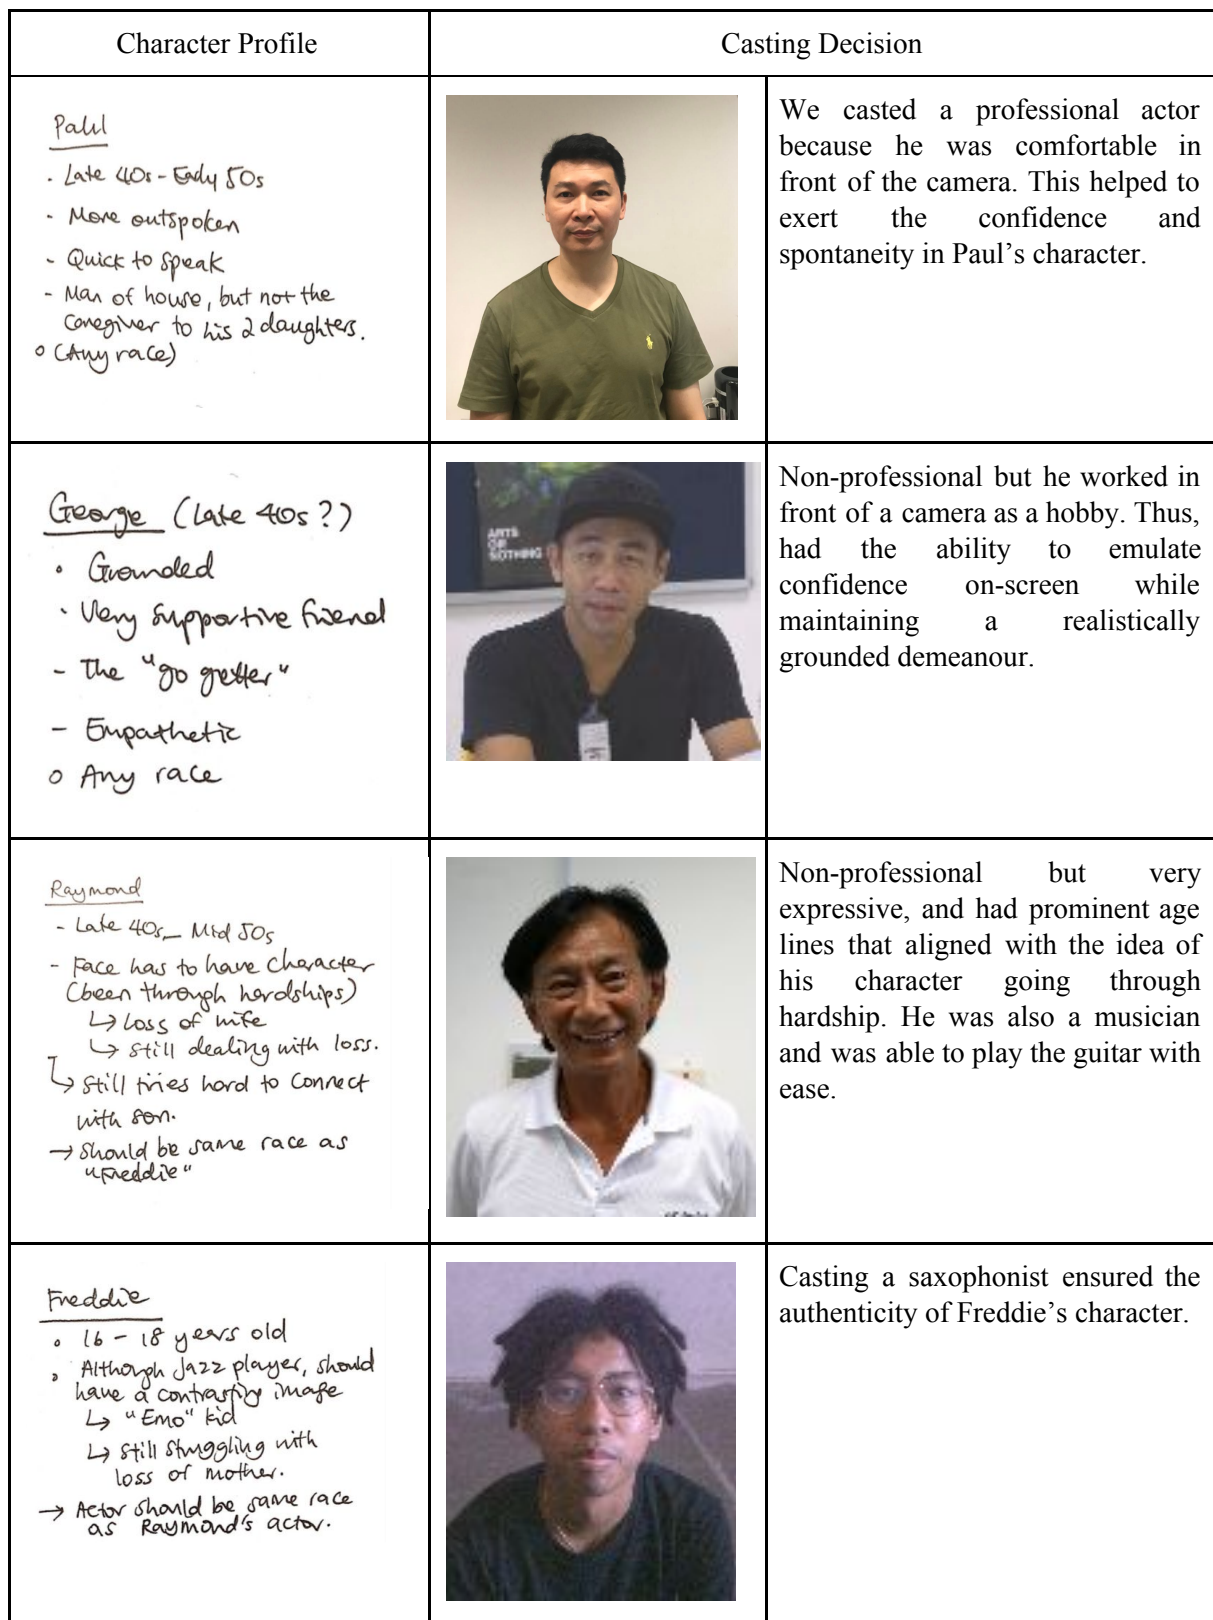 Character Profile
Casting Decision
Paul
· Late 40s - Early 50s
- More outspoken
- Quick to speak
- Man of house, but not the
caregiver to his 2 daughters.
o (Any race)
We casted a professional actor
because he was comfortable in
front of the camera. This helped to
exert the confidence and
spontaneity in Paul’s character.
George (Late 40s?)
· Grounded
· Very supportive friend
- The "go getter"
- Empathetic
o Any race
ARTS
OR
NOTHING
Non-professional but he worked in
front of a camera as a hobby. Thus,
had the ability to emulate
confidence on-screen while
maintaining a realistically
grounded demeanour.
Raymond
- Late 40s - Mid 50s
- Face has to have character
(been through hardships)
↳ Loss of wife
↳ Still dealing with loss.
↳ Still tries hard to connect
with son.
→ Should be same race as
"Freddie"
Non-professional but very
expressive, and had prominent age
lines that aligned with the idea of
his character going through
hardship. He was also a musician
and was able to play the guitar with
ease.
Freddie
o 16 - 18 years old
o Although Jazz player, should
have a contrasting image
↳ "Emo" kid
↳ Still struggling with
loss of mother.
→ Actor should be same race
as Raymond's actor.
Casting a saxophonist ensured the
authenticity of Freddie’s character.